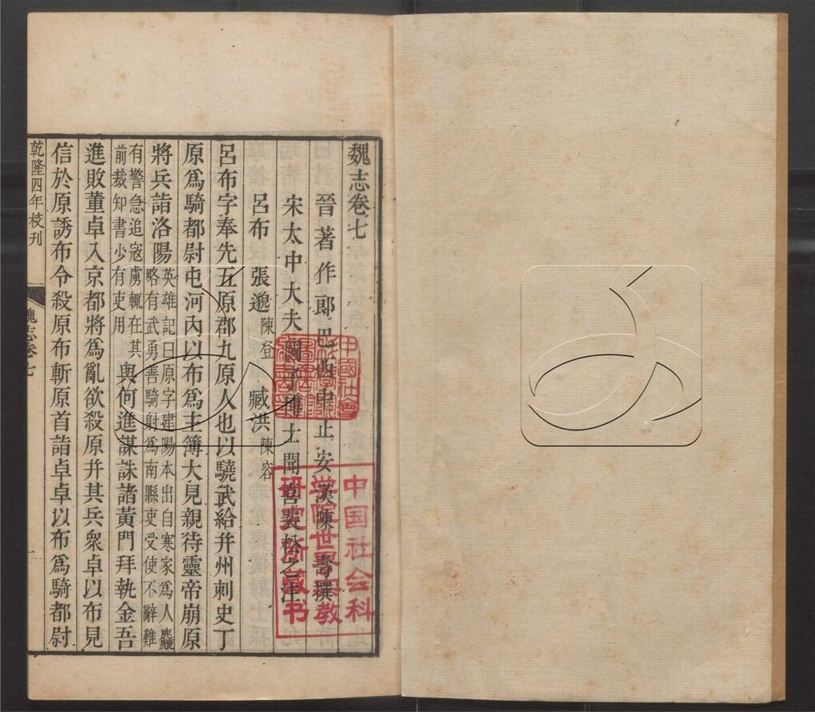 魏志卷七
晉著作郎巴西中正安漢陳壽撰
宋太中大夫國子博士聞喜裴松之注
呂布 張邈 陳登 臧洪 陳容
呂布字奉先五原郡九原人也以驍武給并州刺史丁
原爲騎都尉屯河內以布爲主簿大見親待靈帝崩原
將兵詣洛陽 英雄記曰原字建陽本出自寒家爲人麤
略有武勇善騎射爲南縣吏受使不辭難
有警急追寇虜輒在其
前裁知書少有吏用 與何進謀誅諸黃門拜執金吾
進敗董卓入京都將爲亂欲殺原并其兵衆卓以布見
信於原誘布令殺原布斬原首詣卓卓以布爲騎都尉
乾隆四年校刊
魏志卷七
一
中国社会科
学院世界宗教
研究所藏书